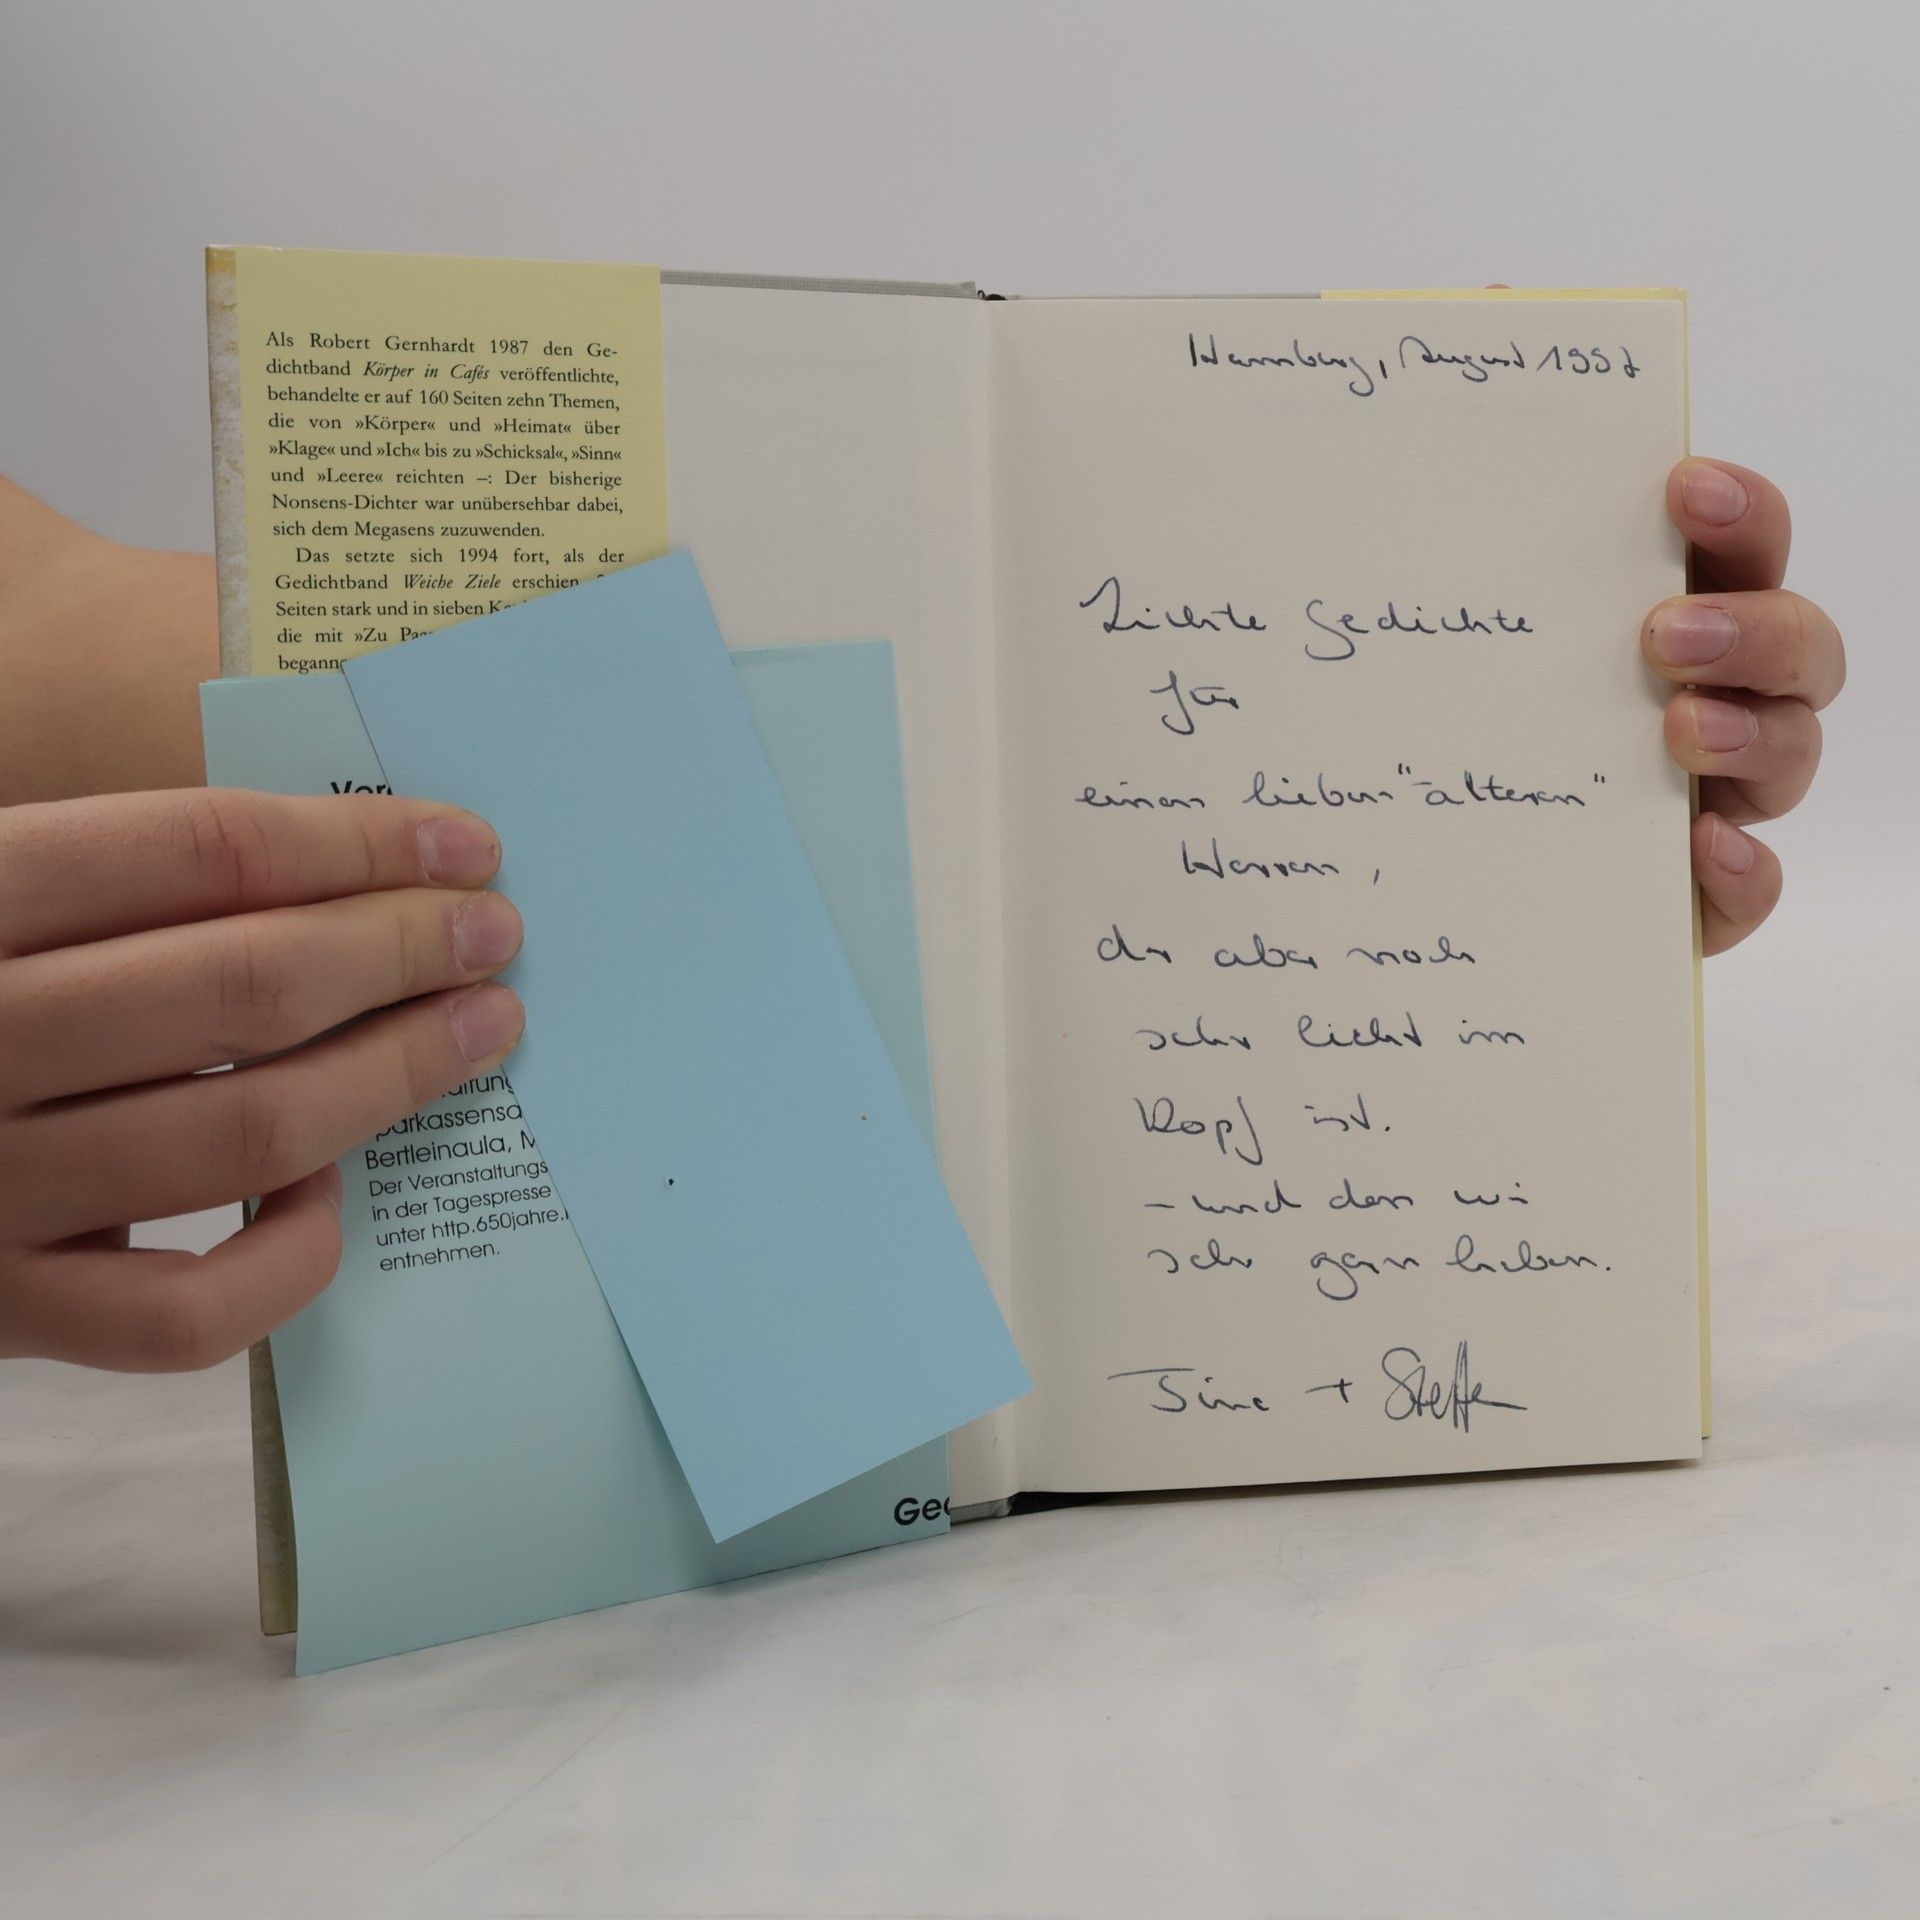 Als Robert Gernhardt 1987 den Ge-
dichtband Körper in Cafés veröffentlichte,
behandelte er auf 160 Seiten zehn Themen,
die von »Körper« und »Heimat« über
»Klage« und »Ich« bis zu »Schicksal«, »Sinn«
und »Leere« reichten –: Der bisherige
Nonsens-Dichter war unübersehbar dabei,
sich dem Megasens zuzuwenden.
Das setzte sich 1994 fort, als der
Gedichtband Weiche Ziele erschien
Seiten stark und in sieben
die mit »Zu
Bertleinaula,
Der Veranstaltungs
in der Tagespresse
unter http.650jahre.
entnehmen.
Hamburg, August 1997
Lichte Gedichte
für
einen lieben "älteren"
Herren,
der aber noch
sehr licht im
Kopf ist.
- und den wir
sehr gern haben.
Tine + Steffen